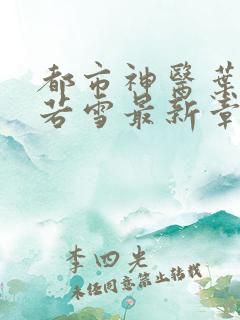 都市神醫葉
若雪最新章
李四光
未经同意禁止转载